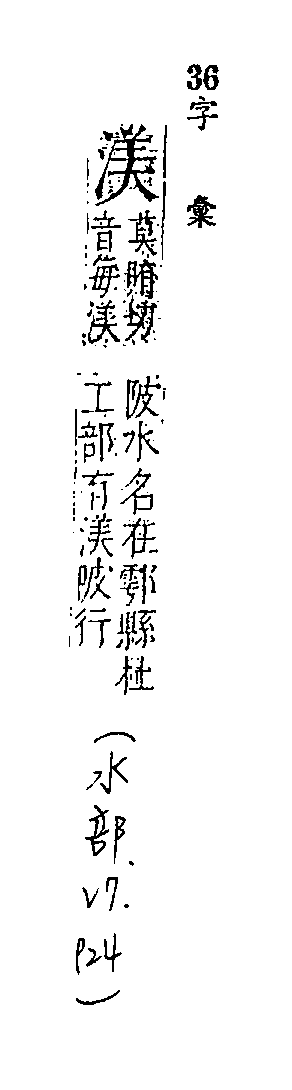 36字彙
渼
莫賄切
音每渼
陂水名在鄠縣杜
工部有渼陂行
(水部.V7.P24)